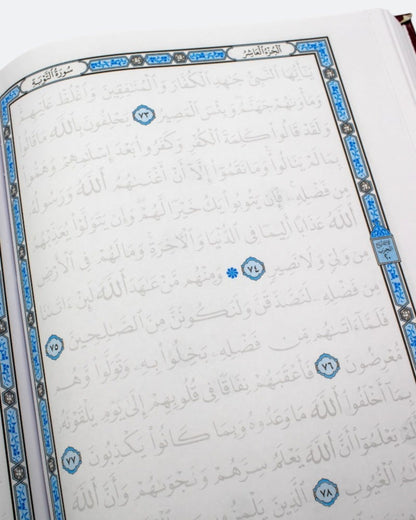 الجزء العاشر سورة التوبة
يَٰٓأَيُّهَا ٱلنَّبِيُّ جَٰهِدِ ٱلْكُفَّارَ وَٱلْمُنَٰفِقِينَ وَٱغْلُظْ عَلَيْهِمْ
وَمَأْوَىٰهُمْ جَهَنَّمُ وَبِئْسَ ٱلْمَصِيرُ ٧٣ يَحْلِفُونَ بِٱللَّهِ مَا قَالُوا۟
وَلَقَدْ قَالُوا۟ كَلِمَةَ ٱلْكُفْرِ وَكَفَرُوا۟ بَعْدَ إِسْلَٰمِهِمْ وَهَمُّوا۟
بِمَا لَمْ يَنَالُوا۟ وَمَا نَقَمُوٓا۟ إِلَّآ أَنْ أَغْنَىٰهُمُ ٱللَّهُ وَرَسُولُهُۥ
مِن فَضْلِهِۦ فَإِن يَتُوبُوا۟ يَكُ خَيْرًا لَّهُمْ وَإِن يَتَوَلَّوْا۟ يُعَذِّبْهُمُ
ٱللَّهُ عَذَابًا أَلِيمًا فِى ٱلدُّنْيَا وَٱلْءَاخِرَةِ وَمَا لَهُمْ فِى ٱلْأَرْضِ
مِن وَلِىٍّ وَلَا نَصِيرٍ ٧٤ ۞ وَمِنْهُم مَّنْ عَٰهَدَ ٱللَّهَ لَئِنْ ءَاتَىٰنَا
مِن فَضْلِهِۦ لَنَصَّدَّقَنَّ وَلَنَكُونَنَّ مِنَ ٱلصَّٰلِحِينَ ٧٥
فَلَمَّآ ءَاتَىٰهُم مِّن فَضْلِهِۦ بَخِلُوا۟ بِهِۦ وَتَوَلَّوا۟ وَّهُم
مُّعْرِضُونَ ٧٦ فَأَعْقَبَهُمْ نِفَاقًا فِى قُلُوبِهِمْ إِلَىٰ يَوْمِ يَلْقَوْنَهُۥ
بِمَآ أَخْلَفُوا۟ ٱللَّهَ مَا وَعَدُوهُ وَبِمَا كَانُوا۟ يَكْذِبُونَ ٧٧
يَعْلَمُوٓا۟ أَنَّ ٱللَّهَ يَعْلَمُ سِرَّهُمْ وَنَجْوَىٰهُمْ وَأَنَّ ٱللَّهَ
ٱلْغُيُوبِ ٧٨ ٱلَّذِينَ يَلْمِزُونَ